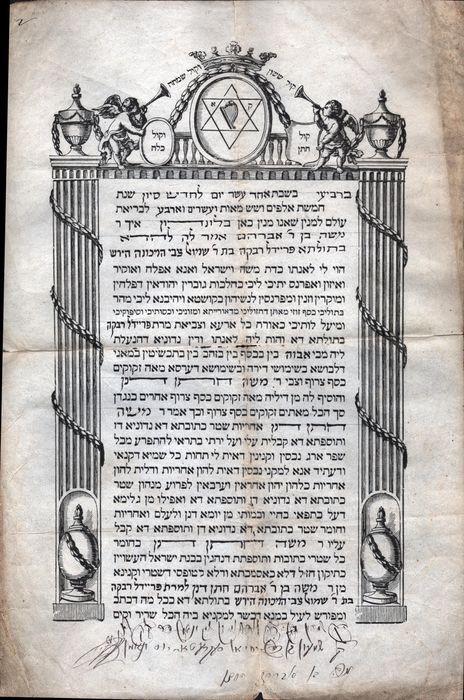 קול ששון וקול שמחה
א
ק
וקול
כלה
קול
חתן
ברביעי בשבת אחד עשר יום לחדש סיון שנת
חמשת אלפים ושש מאות ועשרים וארבע לבריאת
עולם למנין שאנו מנין כאן איך ר
משה בן ר אברהם אמר לה להדא
בתולתא פריידל רבקה בת ר שמואל צבי המכונה הירש
הוי לי לאנתו כדת משה וישראל ואנא אפלח ואוקיר
ואיזון ואפרנס יתיכי ליכי כהלכות גוברין יהודאין דפלחין
ומוקרין וזנין ומפרנסין לנשיהון בקושטא ויהיבנא ליכי מהר
בתוליכי כסף זוזי מאתן דחזוליכי מדאורייתא ומזוניכי וכסותיכי וסיפוקיכי
ומיעל לותיכי כאורח כל ארעא וצביאת מרת פריידל רבקה
בתולתא דא והות ליה לאנתו ודין נדוניא דהנעלת
ליה מבי אבוה בין בכסף בין בזהב בין בתכשיטין במאני
דלבושא בשימושי דירה ובשימושא דערסא מאה זקוקים
כסף צרוף וצבי ר משה חתן דנן
והוסיף לה מן דיליה מאה זקוקים כסף צרוף אחרים כנגדן
סך הכל מאתים זקוקים כסף צרוף וכך אמר ר משה
חתן דנן אחריות שטר כתובתא דא נדוניא דן
ותוספתא דא קבלית עלי ועל ירתי בתראי להתפרע מכל
שפר ארג נכסין וקנינין דאית לי תחות כל שמיא דקנאי
ודעתיד אנא למקני נכסין דאית להון אחריות ודלית להון
אחריות כלהון יהון אחראין וערבאין לפרוע מנהון שטר
כתובתא דא נדוניא דן ותוספתא דא ואפילו מן גלימא
דעל כתפאי בחיי ובמותי מן יומא דנן ולעלם ואחריות
וחומר שטר כתובתא דא נדוניא דן ותוספתא דא קבל
עליו ר משה חתן דנן כחומר
כל שטרי כתובות ותוספתות דנהגין בבנת ישראל העשויין
כתיקון חזל דלא כאסמכתא ודלא כטופסי דשטרי וקנינא
מן ר משה בן ר אברהם חתן דנן למרת פריידל רבקה
בת ר שמואל צבי המכונה הירש בתולתא דא בכל מה דכתב
ומפורש לעיל במנא דכשר למקניא ביה הכל שריר וקים
משה בן אברהם חתן